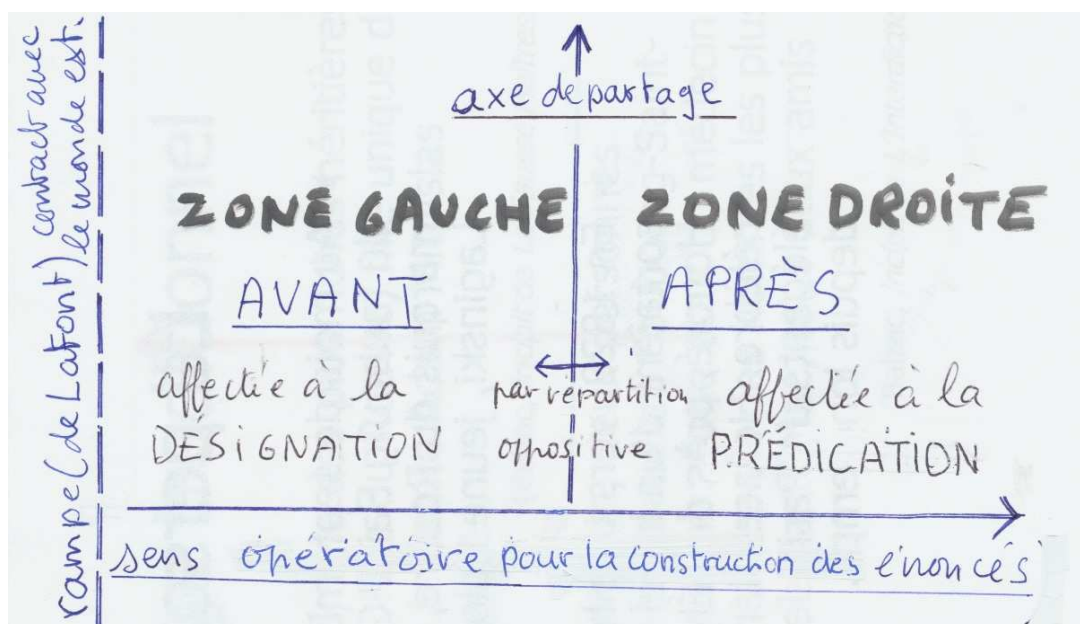 rampe (de Lafont) contact avec
le monde est.
axe de partage
ZONE GAUCHE ZONE DROITE
AVANT APRÈS
affectée à la par répartition affectée à la
DÉSIGNATION oppositive PRÉDICATION
sens opératoire pour la construction des énoncés